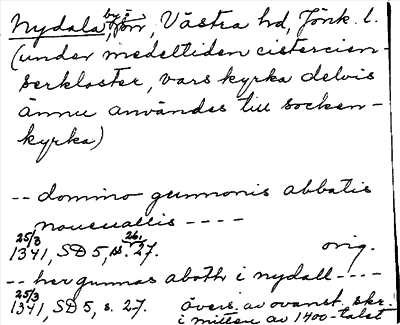 Nydala, by i sn, Västra hd, Jönk. l.
(under medeltiden cistercien-
serkloster, vars kyrka delvis
ännu användes till socken-
kyrka)
-- domino gunnonis abbatis
noueuallis ----
25/3 1341, SD 5, s. 26, 27. orig.
-- her gunnas aboth i nydall ----
25/3 1341, SD 5, s. 27. övers. av ovanst. skr.
i mitten av 1400-talet